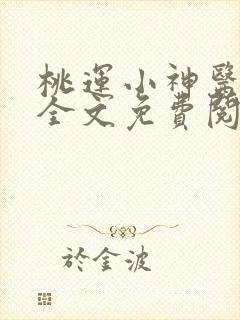 桃運小神醫
全文免費閱
於金波